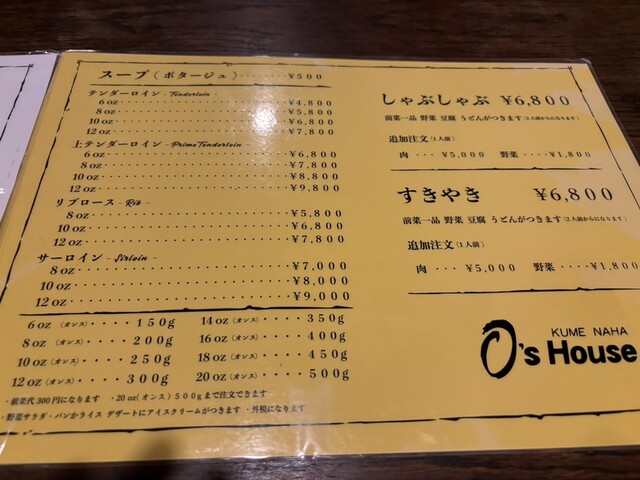 スープ(ポタージュ)‥‥‥‥¥500
テンダーロイン - Tenderloin -
6 oz‥‥‥‥‥‥‥‥¥4,800
8 oz‥‥‥‥‥‥‥‥¥5,800
10 oz‥‥‥‥‥‥‥‥¥6,800
12 oz‥‥‥‥‥‥‥‥¥7,800
上テンダーロイン - Prime Tenderloin
6 oz‥‥‥‥‥‥‥‥¥6,800
8 oz‥‥‥‥‥‥‥‥¥7,800
10 oz‥‥‥‥‥‥‥‥¥8,800
12 oz‥‥‥‥‥‥‥‥¥9,800
リブロース - Rib
8 oz‥‥‥‥‥‥‥‥¥5,800
10 oz‥‥‥‥‥‥‥‥¥6,800
12 oz‥‥‥‥‥‥‥‥¥7,800
サーロイン - Sirloin -
8 oz‥‥‥‥‥‥‥‥¥7,000
10 oz‥‥‥‥‥‥‥‥¥8,000
12 oz‥‥‥‥‥‥‥‥¥9,000
6 oz(オンス)‥‥150g 14 oz(オンス)‥‥350g
8 oz(オンス)‥‥200g 16 oz(オンス)‥‥400g
10 oz(オンス)‥‥250g 18 oz(オンス)‥‥450g
12 oz(オンス)‥‥300g 20 oz(オンス)‥‥500g
・前菜代300円になります ・20 oz(オンス)500gまで注文できます
・野菜サラダ・パンかライス デザートにアイスクリームがつきます ・外税になります
しゃぶしゃぶ ¥6,800
前菜一品 野菜 豆腐 うどんがつきます(2人前からになります)
追加注文(1人前)
肉 ‥‥ ¥5,000 野菜 ‥‥¥1,800
すきやき ¥6,800
前菜一品 野菜 豆腐 うどんがつきます(2人前からになります)
追加注文(1人前)
肉 ‥‥ ¥5,000 野菜 ‥‥¥1,800
KUME NAHA
O's House